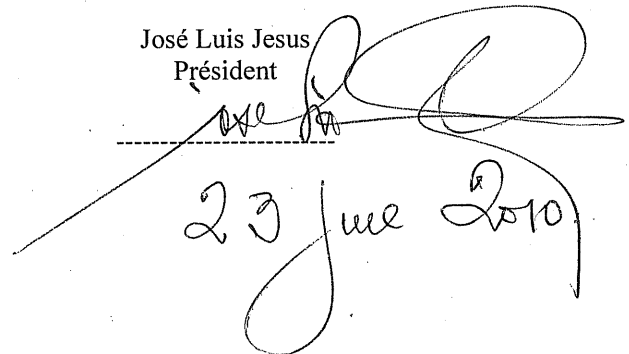 José Luis Jesus
Président
José Luis
23 June 2010